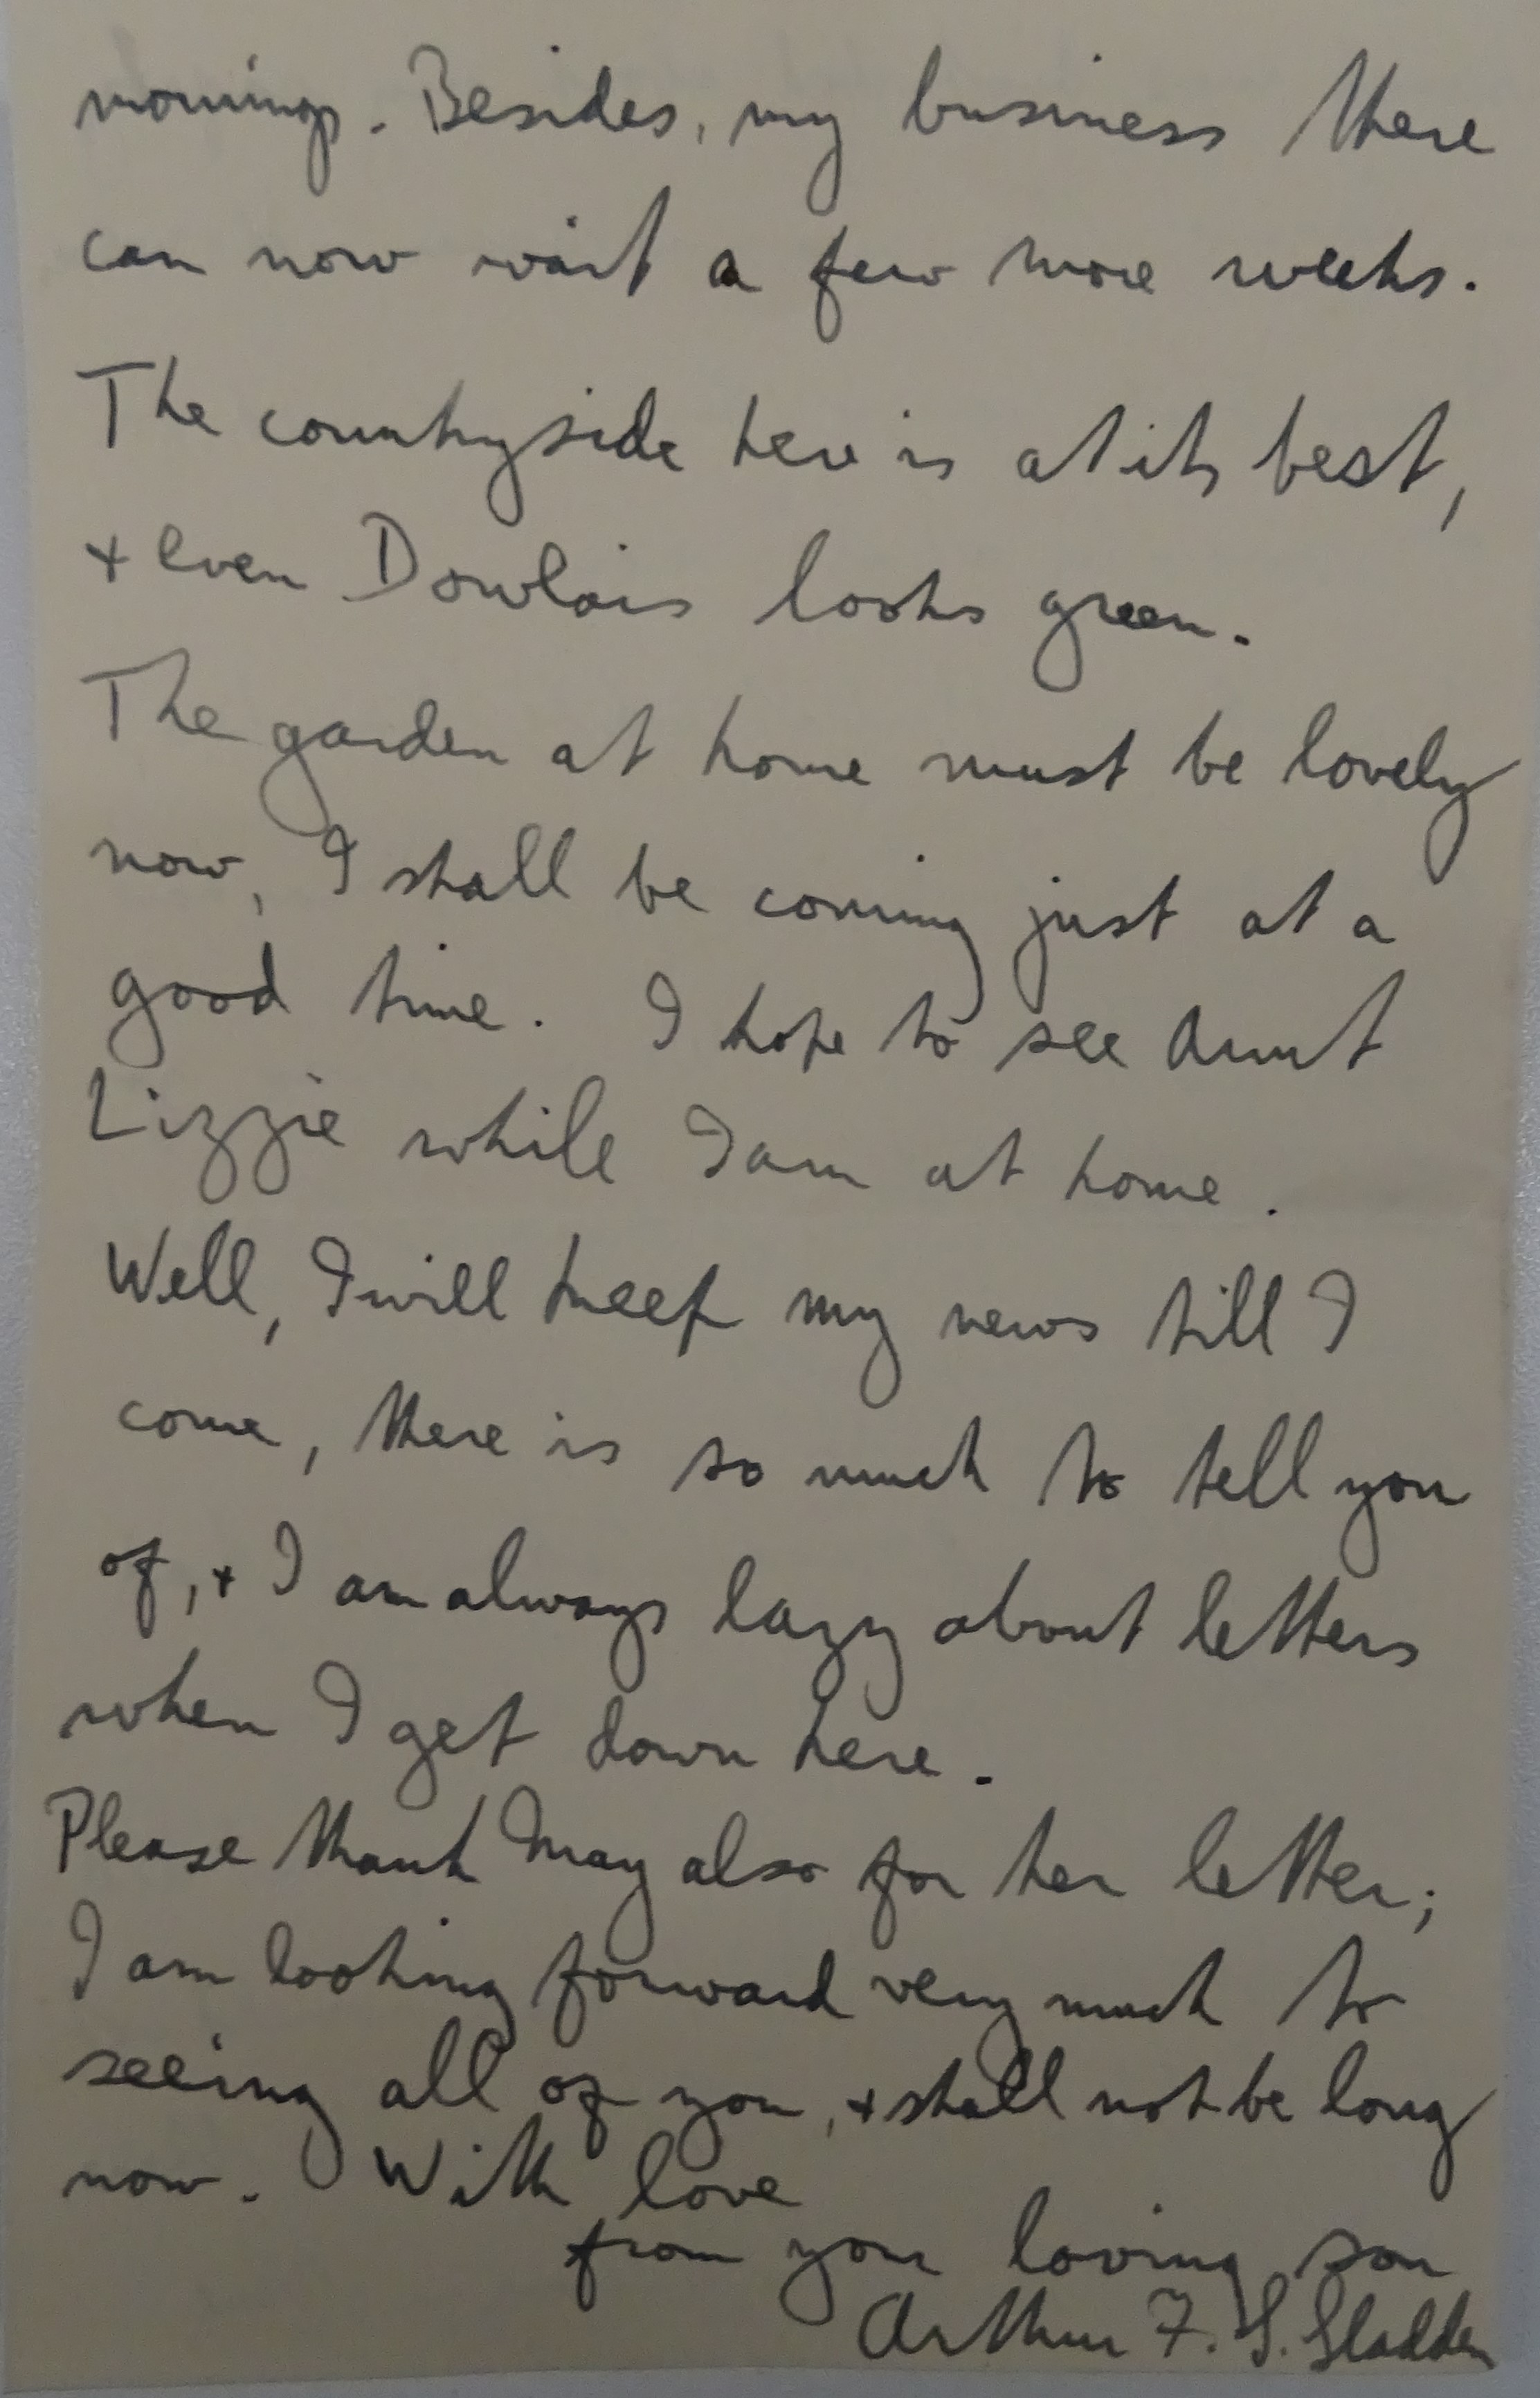 mornings. Besides, my business there
can now wait a few more weeks.
The countryside here is at its best,
+ even Dowlais looks green.
The garden at home must be lovely
now, I shall be coming just at a
good time. I hope to see Aunt
Lizzie while I am at home.
Well, I will keep my news till I
come, there is so much to tell you
of, + I am always lazy about letters
when I get down here.
Please thank May also for her letter;
I am looking forward very much to
seeing all of you, + shall not be long
now. With love
from your loving son
Arthur F. S. Sladden